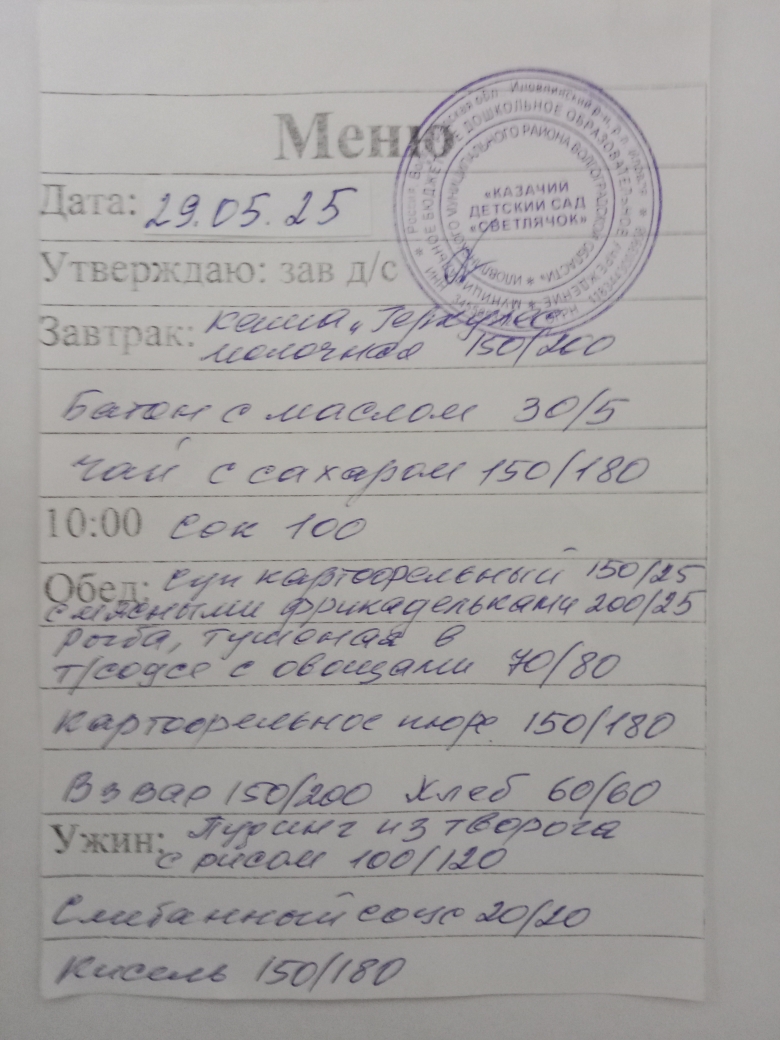 Меню
«КАЗАЧИЙ
ДЕТСКИЙ САД
«СВЕТЛЯЧОК»
Дата: 29.05.25
Утверждаю: зав д/с
Завтрак: каша „Геркулес
молочная 150/200
Батон с маслом 30/5
Чай с сахаром 150/180
10:00 сок 100
Обед: суп картофельный 150/25
с мясными фрикадельками 200/25
рыба, тушоная в
т/соусе с овощами 70/80
Картофельное пюре 150/180
Взвар 150/200 Хлеб 60/60
Ужин: Пудинг из творога
с рисом 100/120
Сметанный соус 20/20
Кисель 150/180